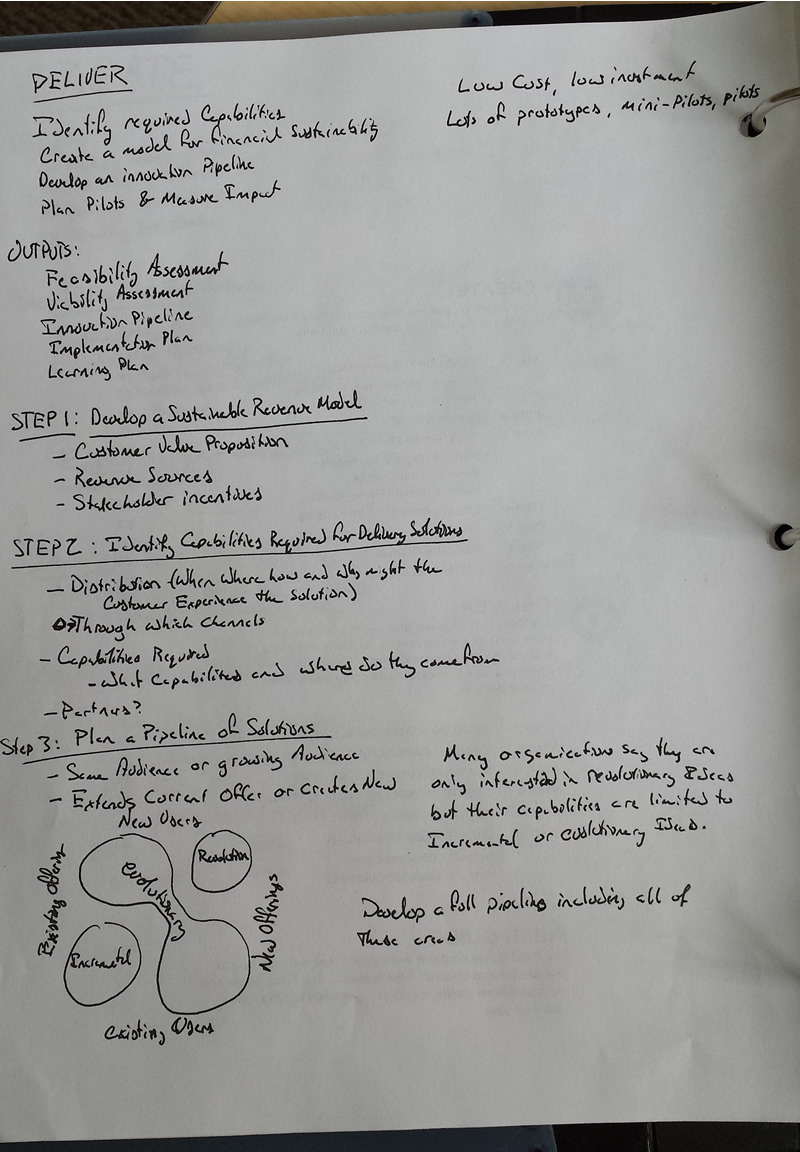 DELIVER
Identify required Capabilities
Create a model for Financial Sustainability
Develop an innovation Pipeline
Plan Pilots & Measure Impact
Low Cost, low investment
Lots of prototypes, mini-Pilots, pilots
OUTPUTS:
Feasibility Assessment
Viability Assessment
Innovation Pipeline
Implementation Plan
Learning Plan
STEP 1: Develop a Sustainable Revenue Model
- Customer Value Proposition
- Revenue Sources
- Stakeholder incentives
STEP 2: Identify Capabilities Required for Delivery Solutions
- Distribution (When Where how and why might the
Customer Experience the Solution)
→ Through which Channels
- Capabilities Required
- What Capabilities and where do they come from
- Partners?
Step 3: Plan a Pipeline of Solutions
- Same Audience or growing Audience
- Extends Current Offer or Creates New
Many organization say they are
only interested in revolutionary Ideas
but their capabilities are limited to
Incremental or evolutionary Ideas.
New Users
Existing Offering
evolutionary
Revolution
New Offerings
Incremetal
existing Users
Develop a full pipeline including all of
these areas